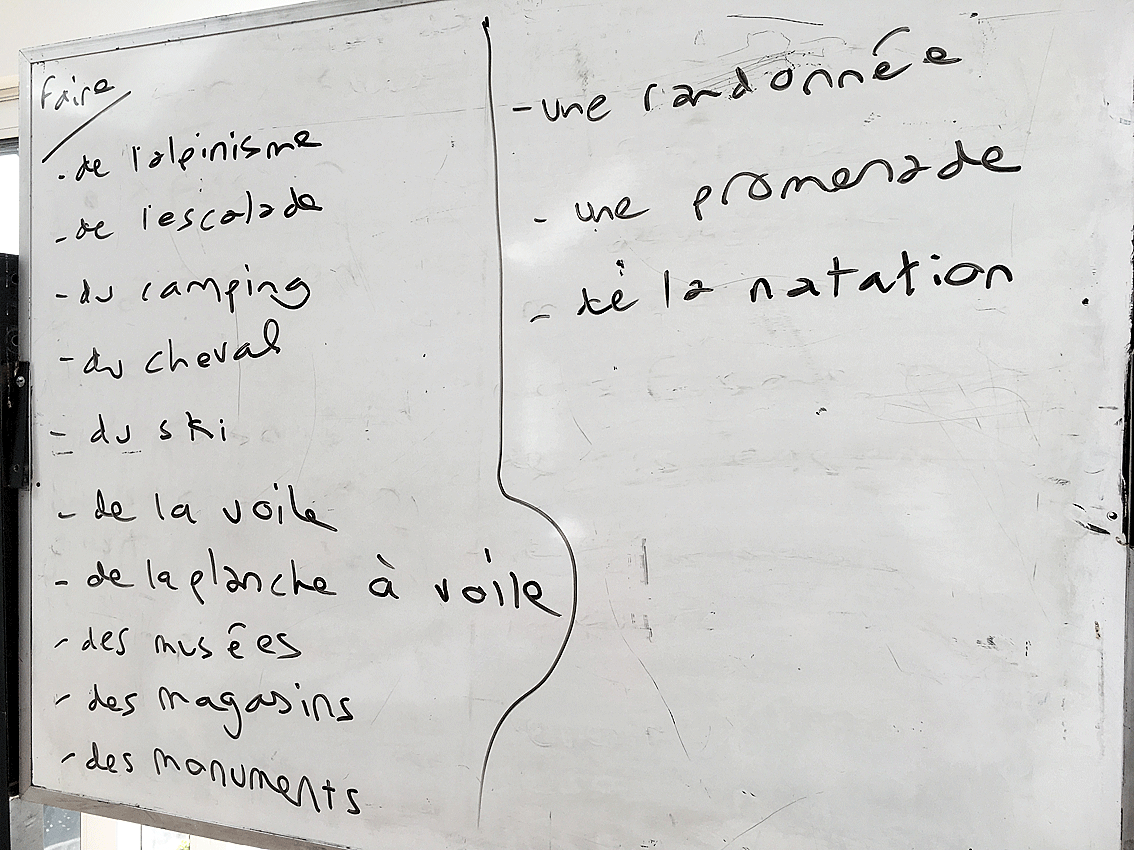 Faire
- de l'alpinisme
- de l'escalade
- du camping
- du cheval
- du ski
- de la voile
- de la planche à voile
- des musées
- des magasins
- des monuments
- une randonnée
- une promenade
- de la natation